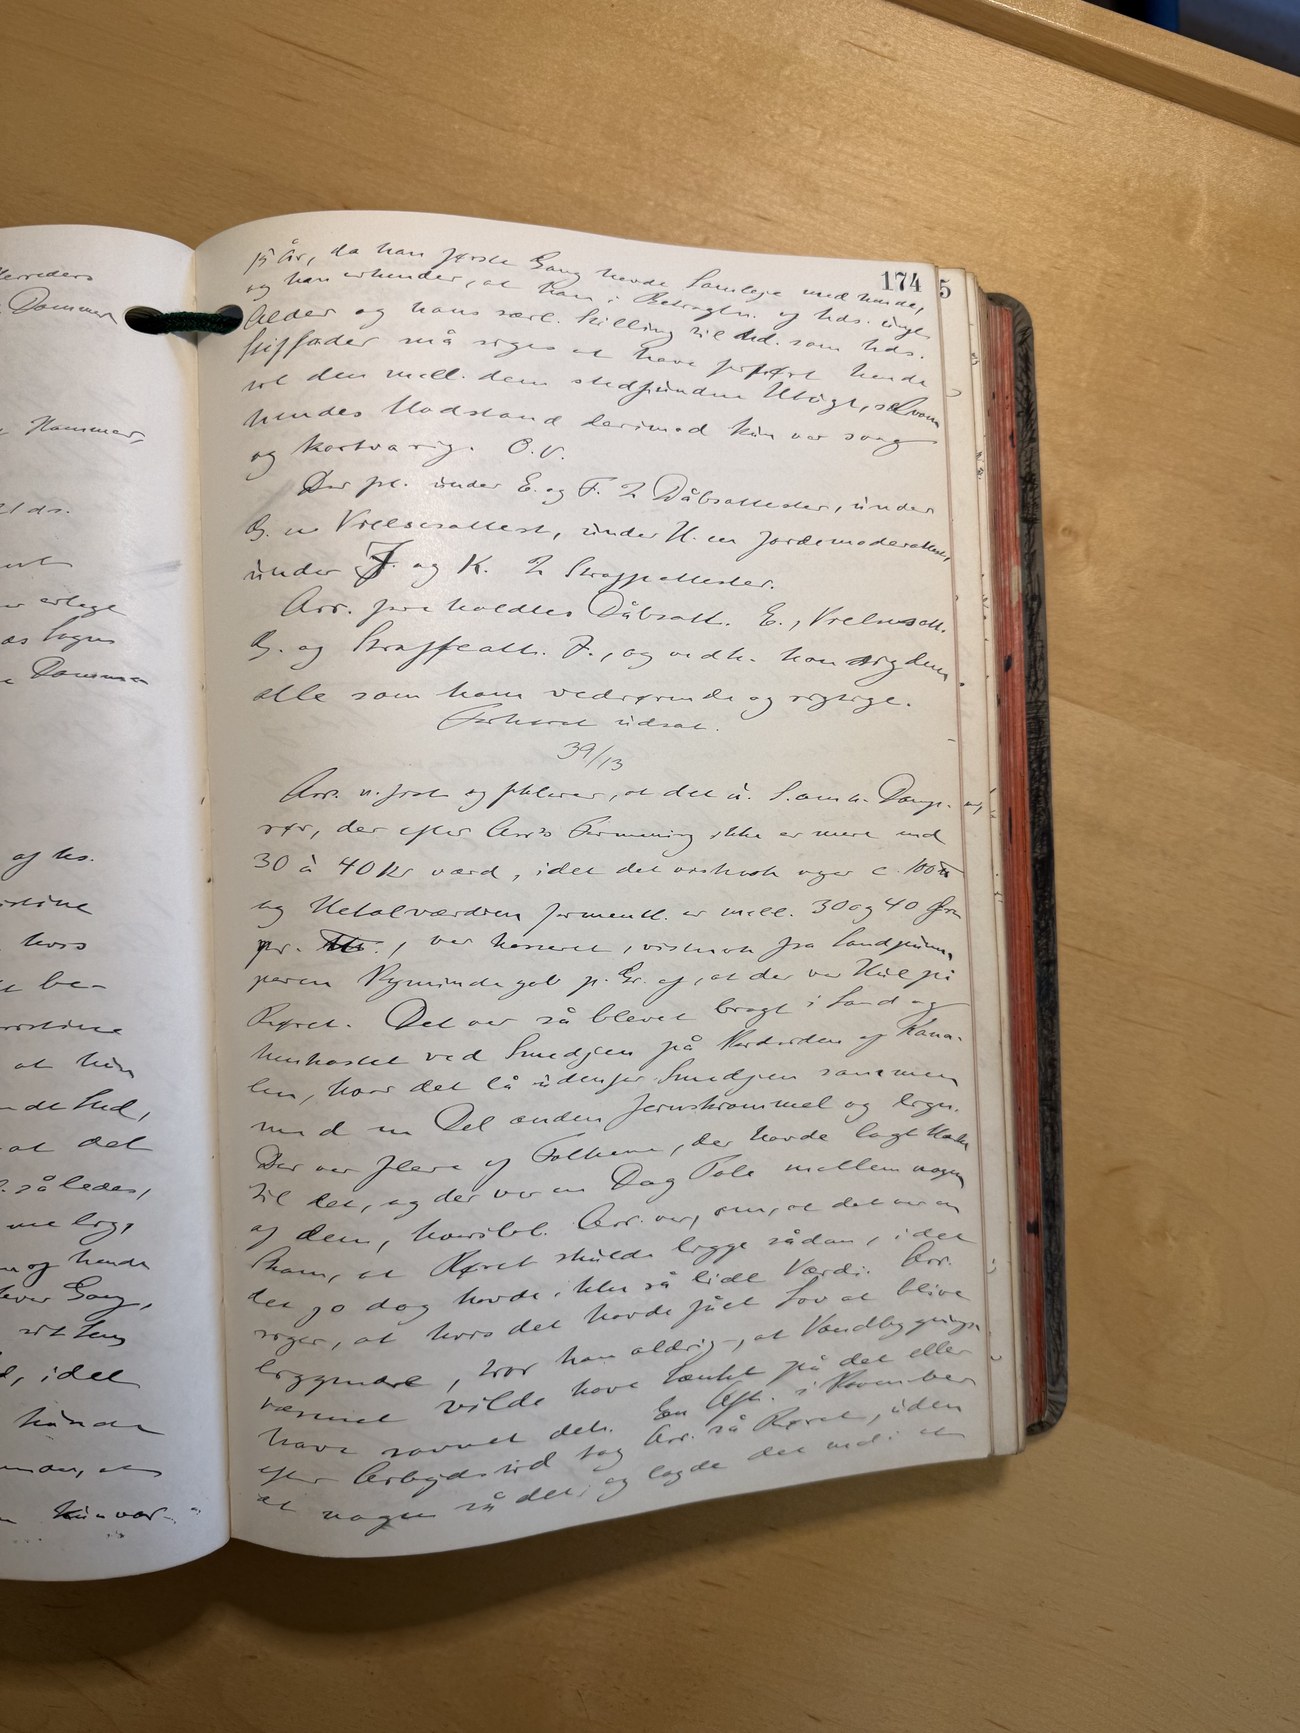 Herreders
Dommer
Hammer,
Uds.
erlagt
Sogns
Dommer
af hs.
istine
hvis
be-
ristine
at hun
de Sted,
at det
således,
og hende
hver Gang,
sit Sem
, idet
kunde
hun var
174
5
15 år, da han første Gang havde Samleje med hende,
og han erkender, at han i Betragtn. af hds. unge
Alder og hans særl. Stilling til hd. som hds.
Stiffader må siges at have forført hende
til den mell. dem stedfundne Utugt, selvom
hendes Modstand derimod kun var svag
og kortvarig. O.V.
Der fr. under E. og F. 2 Dåbsattester, under
G. en Vielsesattest, under H. en Jordemoderattest,
under J. og K. 2 Straffattester.
Arr. foreholdtes Dåbsatt. E., Vielsesatt.
G. og Straffeatt. J., og vedk. han sig dem
alle som ham vedrørende og rigtige.
Forhøret udsat.
39/13
Arr. n. frst og forklarer, at det u. S. omh. Damp-
rør, der efter Arr's Formening ikke er mere end
30 à 40 Kr værd, idet det vistnok vejer c. 100 ℔
og Metalværdien formentl. er mell. 30 og 40 Øre
pr. ℔., var kasseret, vistnok fra Sandpumpe-
peren Nyminde gab p. Gr. af, at der var Hul på
Røret. Det var så blevet bragt i Land og
henkastet ved Smedjen på Nordsiden af Kana-
len, hvor det lå udenfor Smedjen sammen
med en Del anden Jernskrammel og lign.
Der var flere af Folkene, der havde lagt Mærke
til det, og der var en Dag Tale mellem nogen
af dem, hvoribl. Arr. var, om, at det var en
Skam, at Røret skulde ligge sådan, idet
det jo dog havde ikke så lidt Værdi. Arr.
siger, at hvis det havde fået Lov at blive
liggende, tror han aldrig, at Vandbygnings-
væsenet vilde have tænkt på det eller
have savnet det. En Aft. i November
efter Arbejdstid tog Arr. så Røret, uden
at nogen så det, og lagde det ned i et